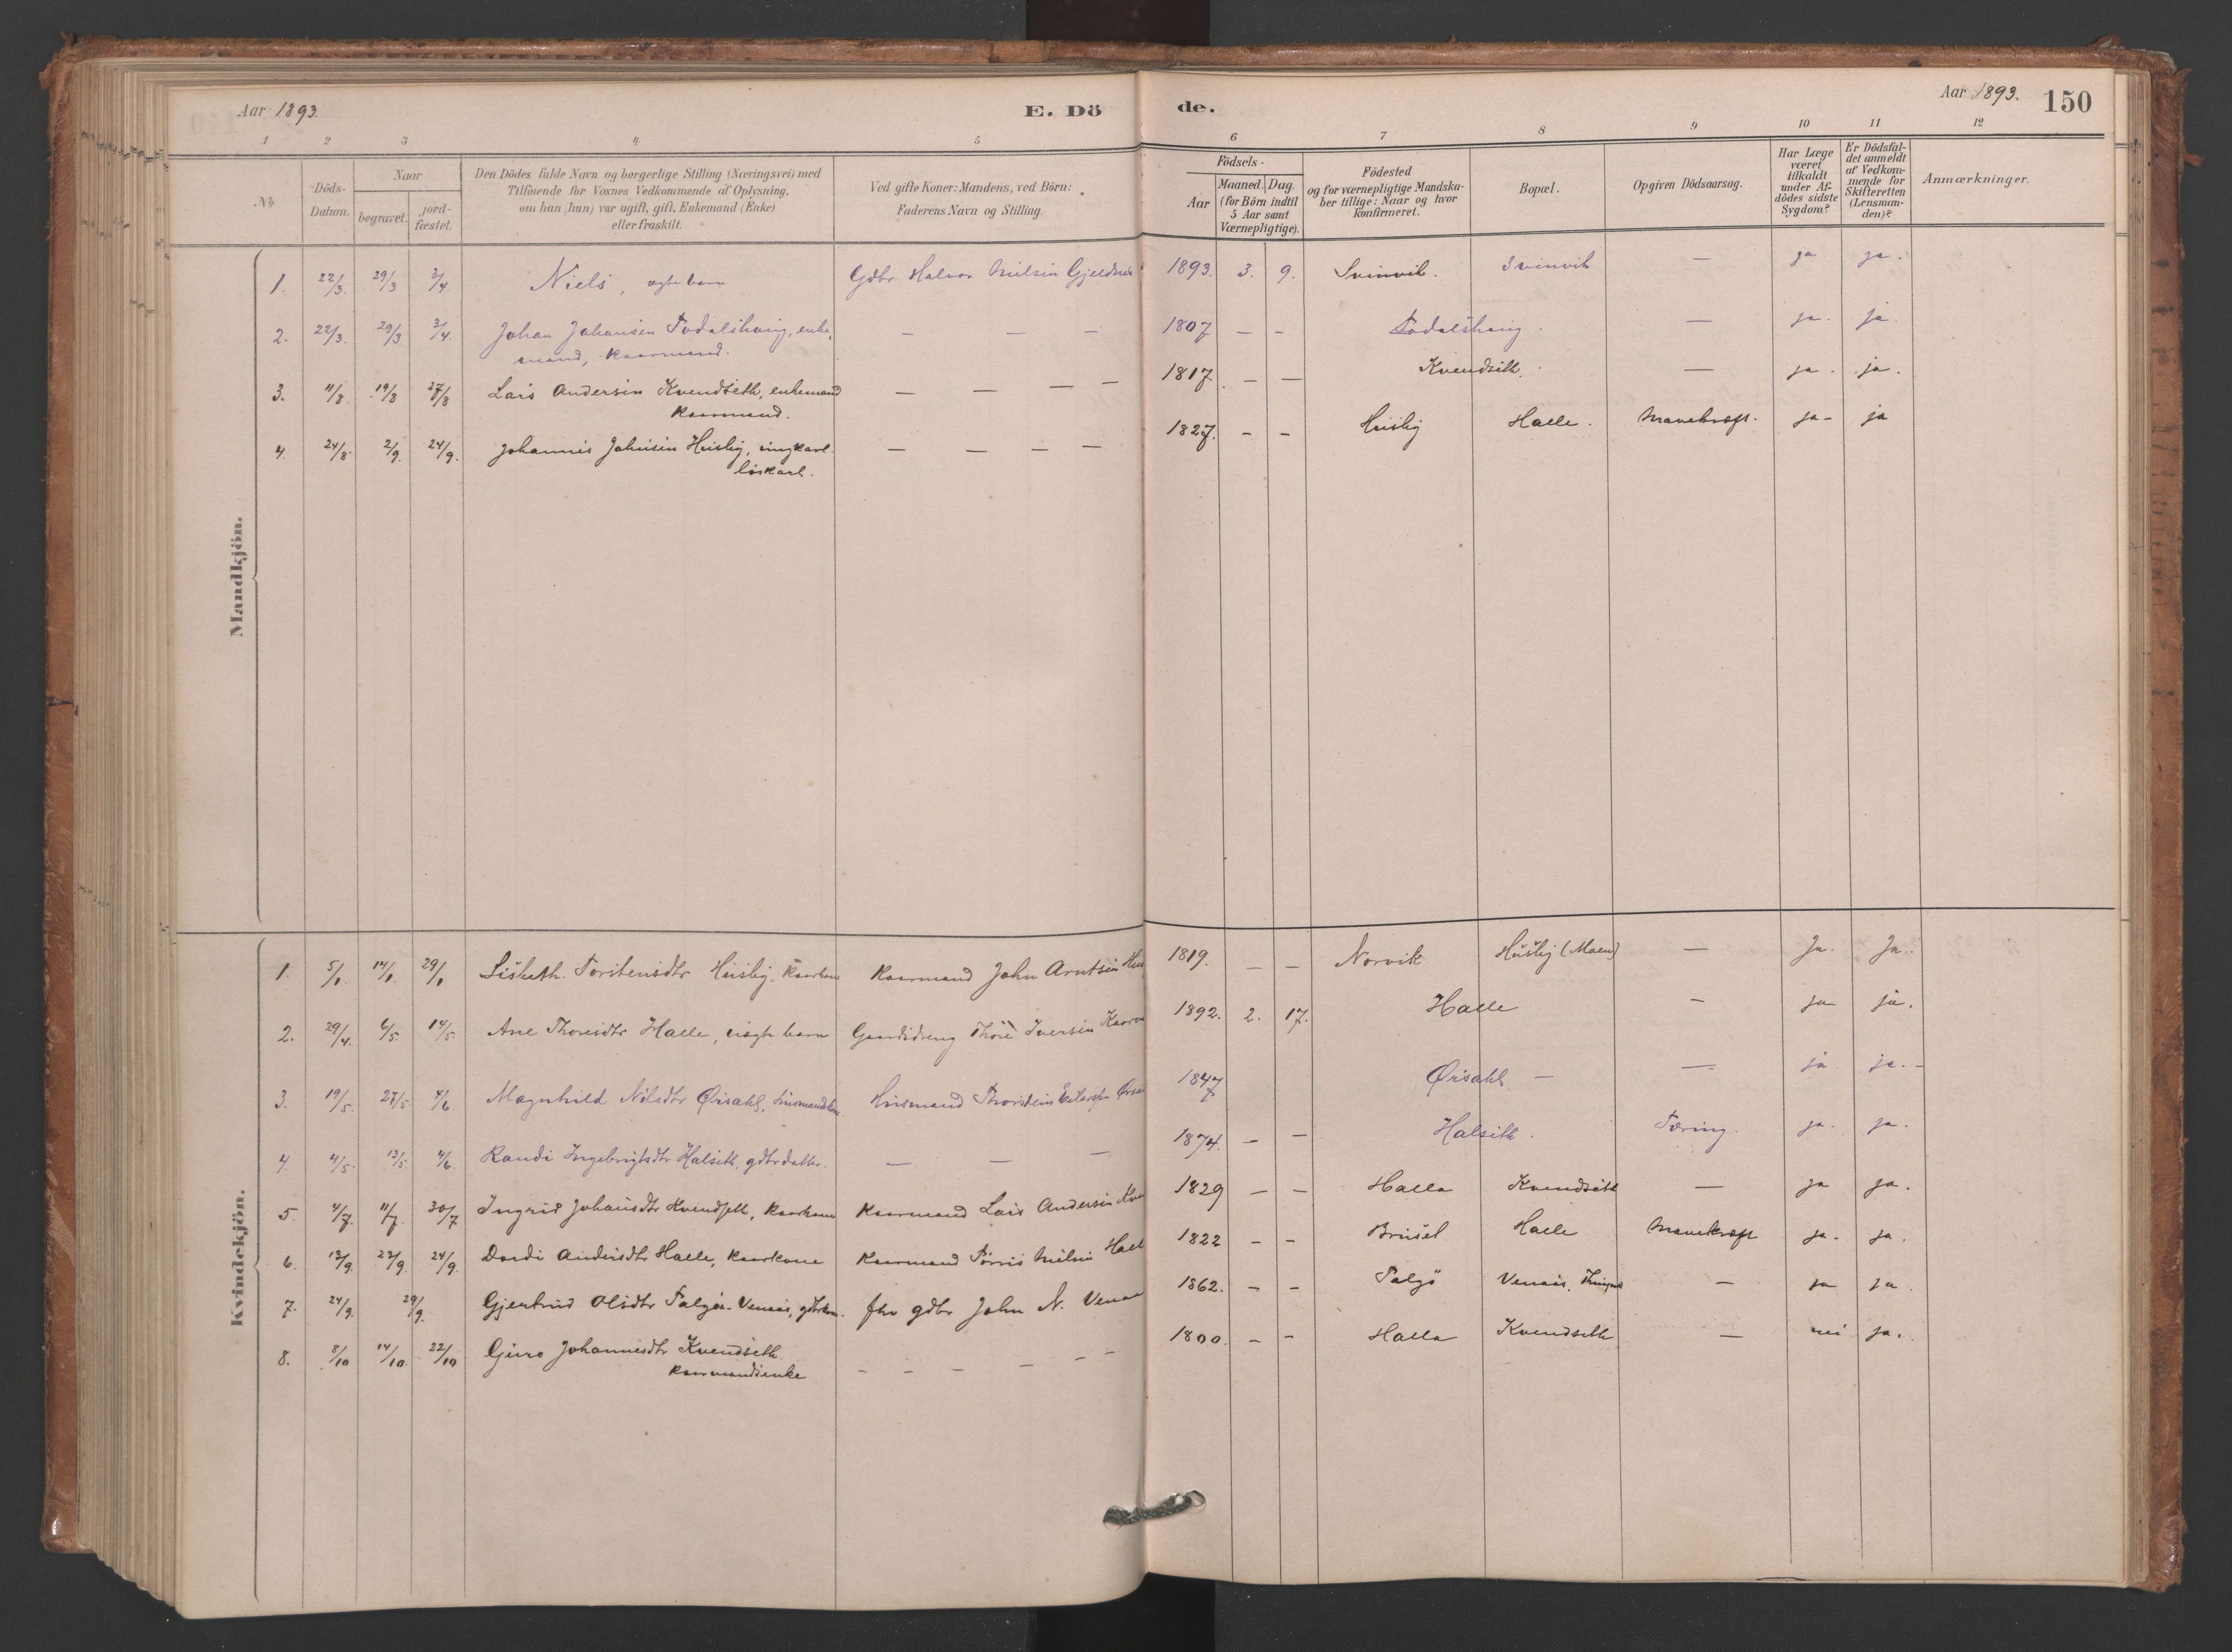 Aar 1893.
E. Dö
de.
Aar 1893.
150
1 2 3 4 5 6 7 8 9 10 11 12
No
Döds-
Datum.
Naar
begravet.
jord-
fæstet.
Den Dödes fulde Navn og borgerlige Stilling (Næringsvei) med
Tilföiende for Voxnes Vedkommende af Oplysning,
om han (hun) var ugift, gift, Enkemand (Enke)
eller fraskilt.
Ved gifte Koner: Mandens, ved Börn:
Faderens Navn og Stilling.
Födsels-
Aar
Maaned. Dag.
(for Börn indtil
5 Aar samt
Værnepligtige).
Födested
og for værnepligtige Mandska-
ber tillige: Naar og hvor
konfirmeret.
Bopæl.
Opgiven Dödsaarsag.
Har Læge
været
tilkaldt
under Af-
dödes sidste
Sygdom?
Er Dödsfal-
det anmeldt
af Vedkom-
mende for
Skifteretten
(Lensman-
den)?
Anmærkninger.
Mandkjön.
1. 22/3. 29/3 3/4. Niels, ægte barn Gdbr. Halvor Nielsen 1893. 3. 9. Svinvik. Svinvik — ja ja.
2. 22/3. 29/3 3/4. Johan Johansen Todalshaug, enke, — — — 1807 — — Todalshaug. — ja. ja.
mand, kaarmand.
3. 11/8. 19/8 27/8 Lars Andersen Kvendseth, enkemand — — — — 1817. — — Kvendseth. — ja. ja.
Kaarmand.
4. 24/8. 2/9. 24/9. Johannes Johnsen Husby, ungkarl. — — — — 1827. — — Husby Halle. Mavekræft. ja- ja
löskarl.
Kvindekjön.
1. 5/1. 14/1. 29/1 Lisbeth Torstensdtr Husby, Kaarkone Kaarmand John Arntsen 1819. — — Norvik Husby (Moen) — Ja. Ja.
2. 29/4. 6/5. 14/5. Ane Thoresdtr Halle, uægte barn Gaardsdreng Thore Iversen 1892. 2. 17. Halle — ja ja.
3. 19/5. 27/5. 4/6. Magnhild Nilsdtr Ørsahl, Husmandskone Husmand Thorstein 1847 Ørsahl — — ja ja. -
4. 4/5. 13/5. 4/6. Randi Ingebrigtsdtr Halseth, gdbrdatter. — — — 1874. — — Halseth. Tæring. ja. ja.
5. 4/7. 11/7. 30/7 Ingrid Johansdtr Kvendseth, Kaarkone Kaarmand Lars Andersen 1829 — — Halle Kvendseth — ja ja.
6. 13/9. 23/9. 24/9. Dordi Andersdtr Halle, Kaarkone Kaarmand Törris Nielsen Hall 1822 — — Halle Mavekræft ja. ja.
7. 24/9. 29/9. Gjertrud Olsdtr Talgö-Venaas, gdbrkone. fhv gdbr John N. 1862. — — Talgö Venaas, — ja ja
8. 8/10 14/10. 22/10 Guro Johannesdtr Kvendseth. — — — — — — 1800. — — Halla Kvendseth — nei ja.
Kaarmandsenke